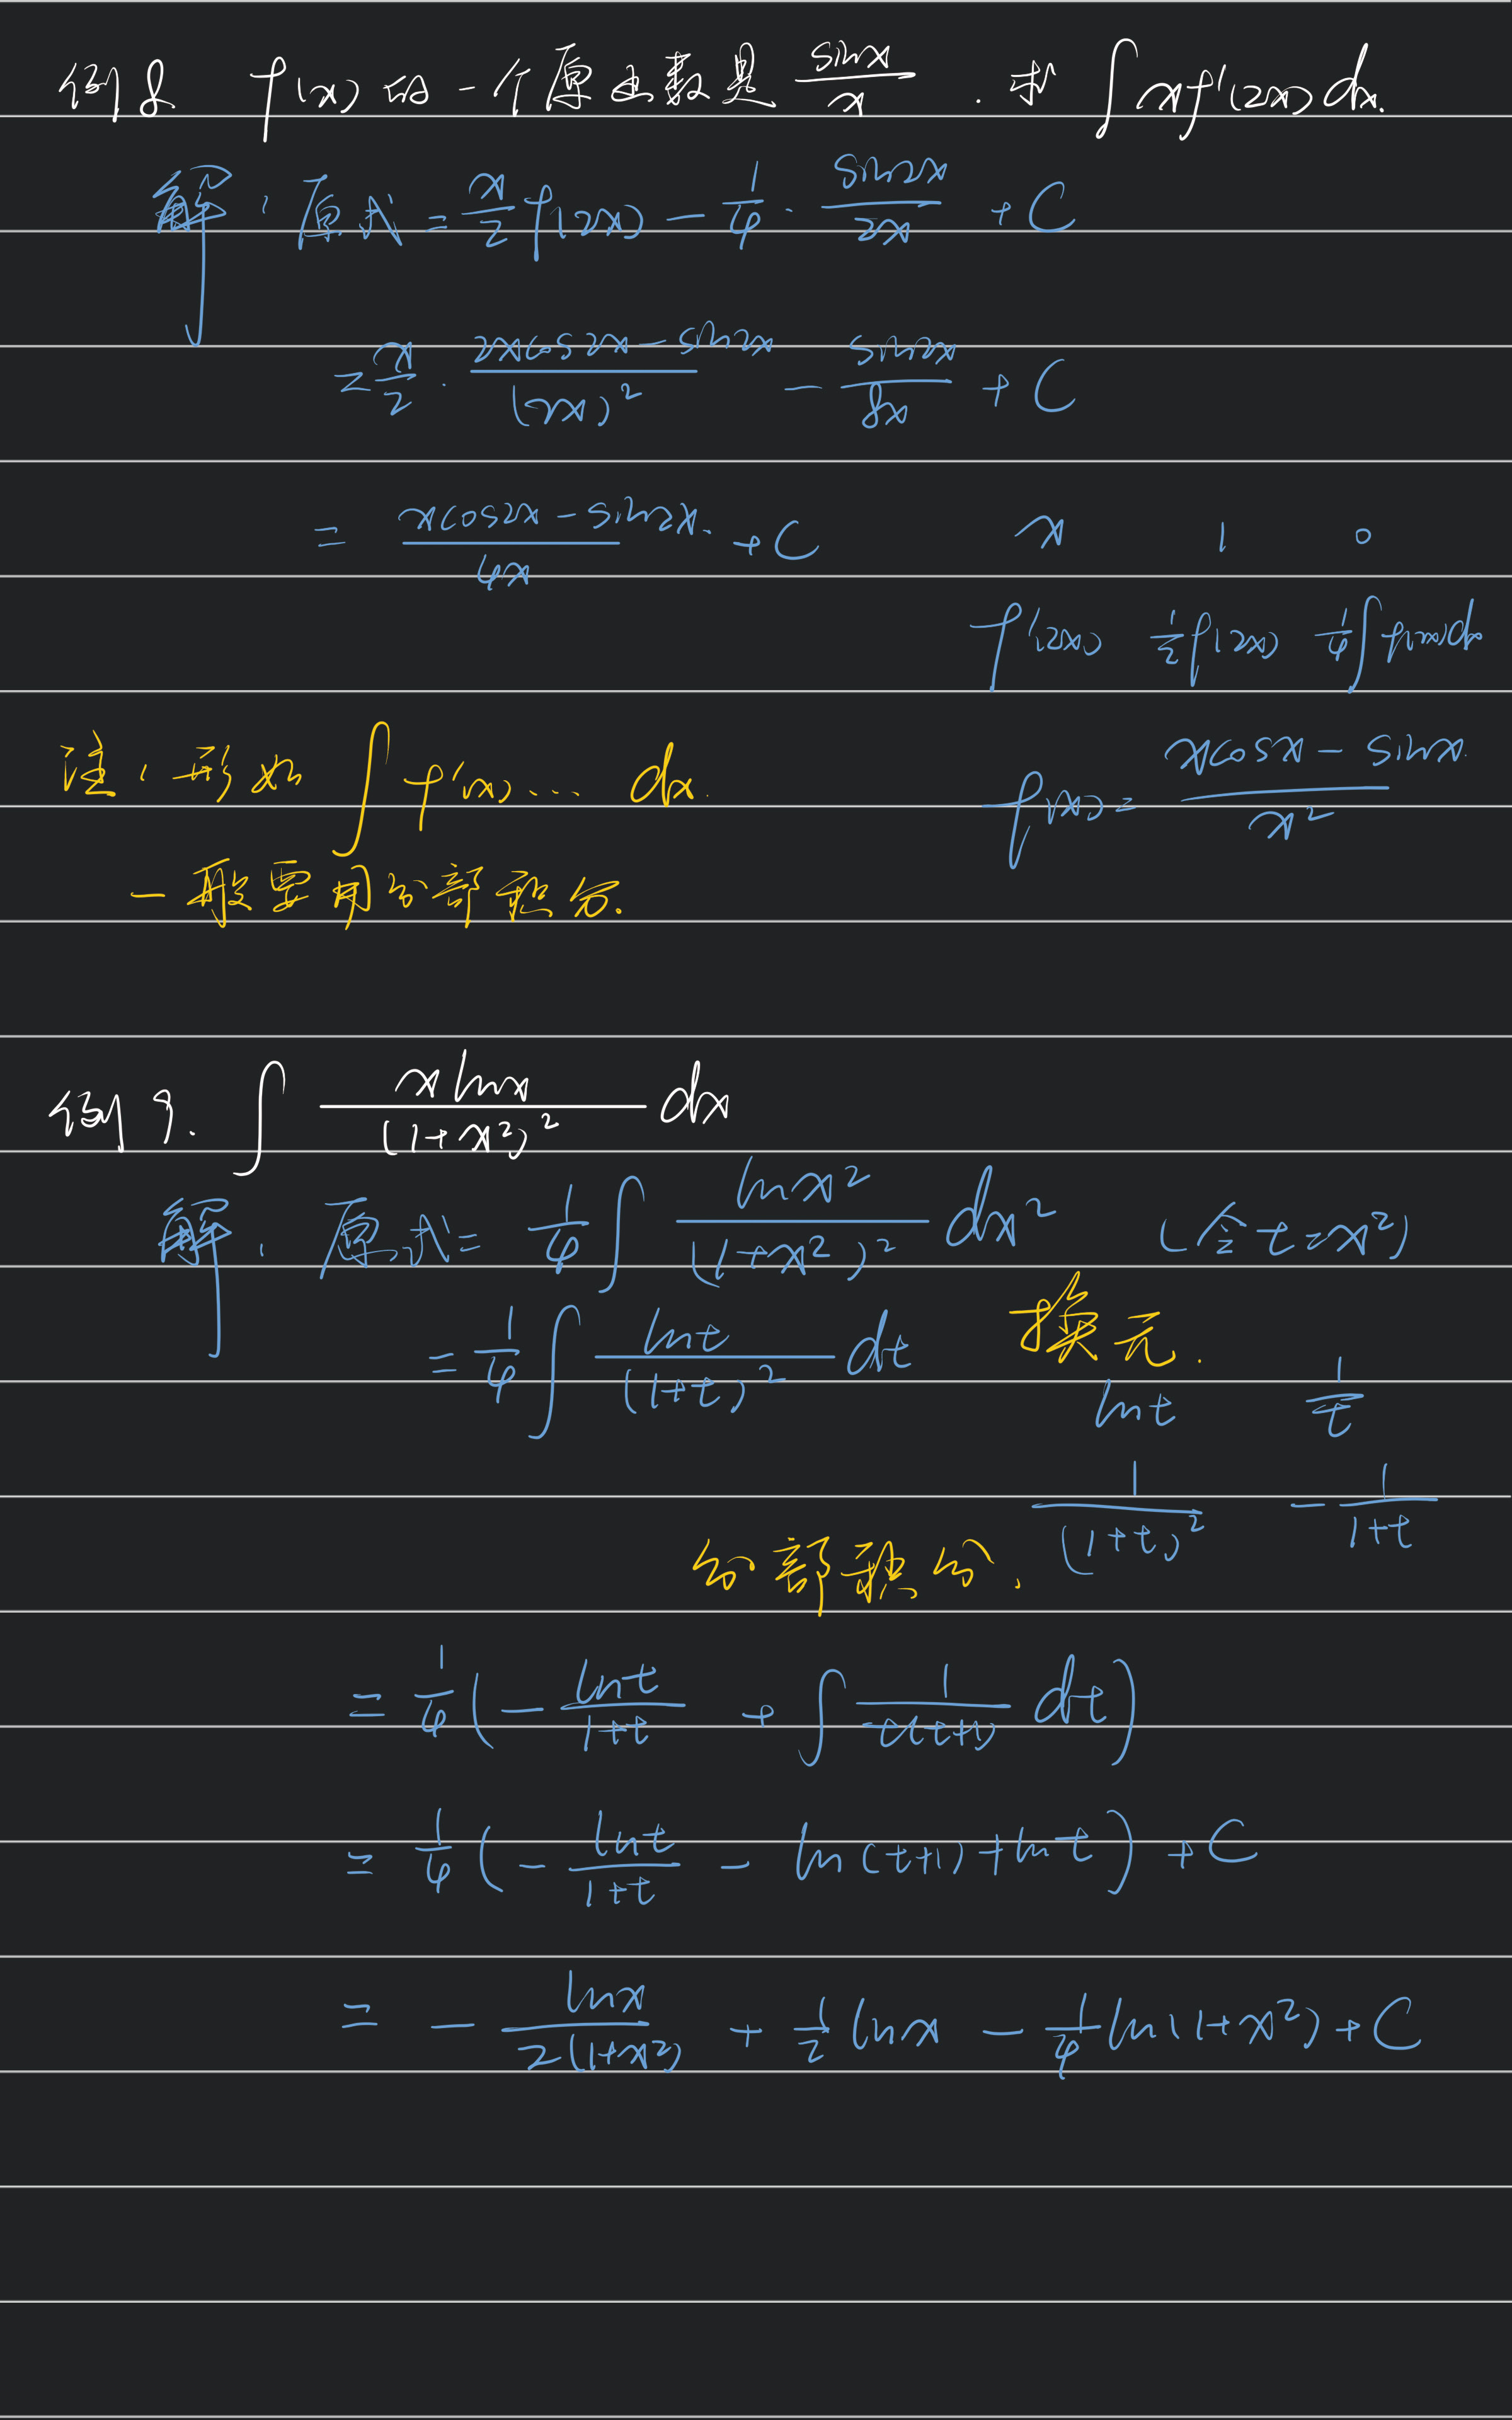 例8. f(x)的一个原函数是 \frac{sinx}{x}. 求 ∫xf'(2x)dx.
解: 原式 = \frac{x}{2}f(2x) - \frac{1}{4}·\frac{sin2x}{2x} + C
= \frac{x}{2}·\frac{2xcos2x-sin2x}{(2x)^2} - \frac{sin2x}{8x} + C
= \frac{xcos2x-sin2x}{4x} + C
x 1 0
f'(2x) \frac{1}{2}f(2x) \frac{1}{4}∫f(2x)dx
f(x) = \frac{xcosx-sinx}{x^2}
注: 形如 ∫f'(x)... dx.
一般要用分部积分.
例9. ∫\frac{xlnx}{(1+x^2)^2}dx
解: 原式 = \frac{1}{4}∫\frac{lnx^2}{(1+x^2)^2}dx^2 (令t=x^2)
= \frac{1}{4}∫\frac{lnt}{(1+t)^2}dt 换元.
lnt \frac{1}{t}
\frac{1}{(1+t)^2} -\frac{1}{1+t}
分部积分.
= \frac{1}{4}(-\frac{lnt}{1+t} + ∫\frac{1}{t(t+1)}dt)
= \frac{1}{4}(-\frac{lnt}{1+t} - ln(t+1) + lnt) + C
= -\frac{lnx}{2(1+x^2)} + \frac{1}{2}lnx - \frac{1}{4}ln(1+x^2) + C